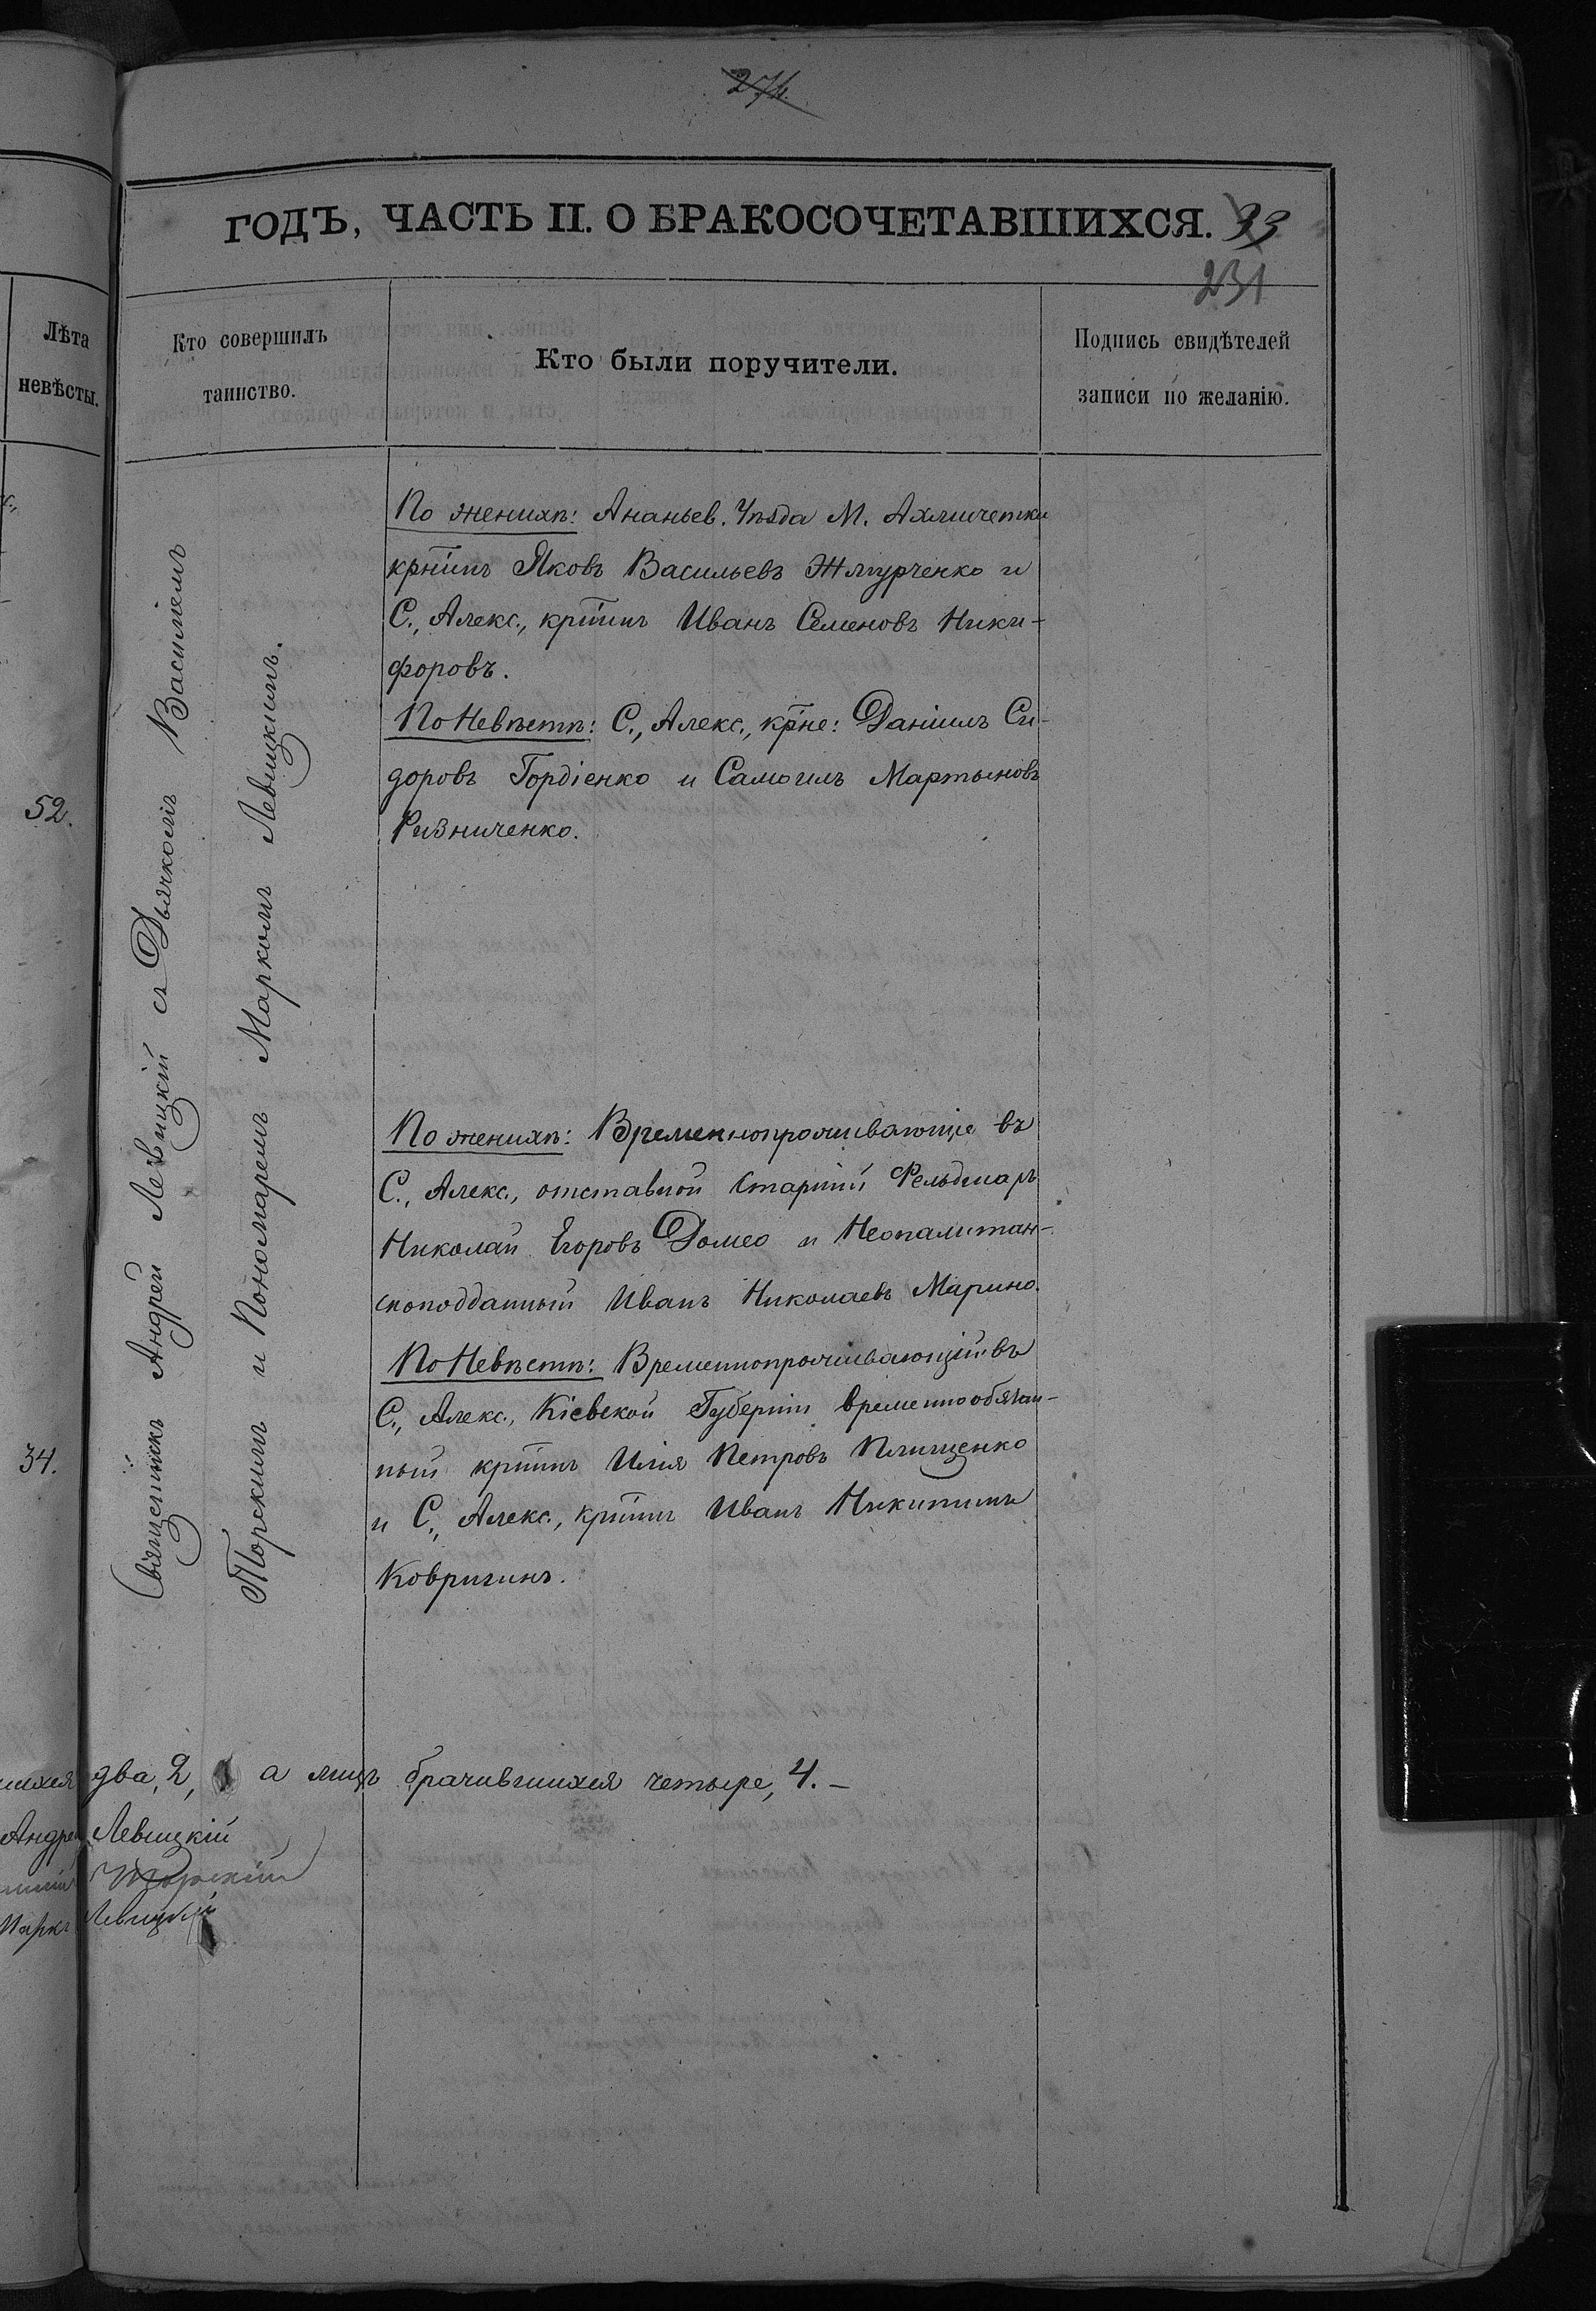 274.
ГОДЪ, ЧАСТЬ II. О БРАКОСОЧЕТАВШИХСЯ. 93
231
Лѣта
невѣсты.
Кто совершилъ
таинство.
Кто были поручители.
Подпись свидѣтелей
записи по желанію.
52.
34.
Священникъ Андрей Левицкій съ Дьячкомъ Василіемъ
Торскимъ и Пономаремъ Маркомъ Левицкимъ.
По женихѣ: Ананьев. Уѣзда М. Ахмичетки
крнинъ Яковъ Васильевъ Жмурченко и
С., Алекс., крнинъ Иванъ Семеновъ Ники-
форовъ.
По Невѣстѣ: С., Алекс., крне: Даніилъ Си-
доровъ Гордіенко и Самоилъ Мартыновъ
Ризниченко.
По женихѣ: Временнопроживающіе въ
С., Алекс., отставной Старшій Фельдшаръ
Николай Егоровъ Домео и Неопалитан-
скоподданный Иванъ Николаевъ Марино.
По Невѣстѣ: Временнопроживающій въ
С., Алекс., Кіевской Губерніи временнообязан-
ный крнинъ Илія Петровъ Плищенко
и С., Алекс., крнинъ Иванъ Никитинъ
Ковригинъ.
шихся два, 2, а лицъ брачившихся четыре, 4. –
Андрей Левицкій
Торскій
Маркъ Левицкій